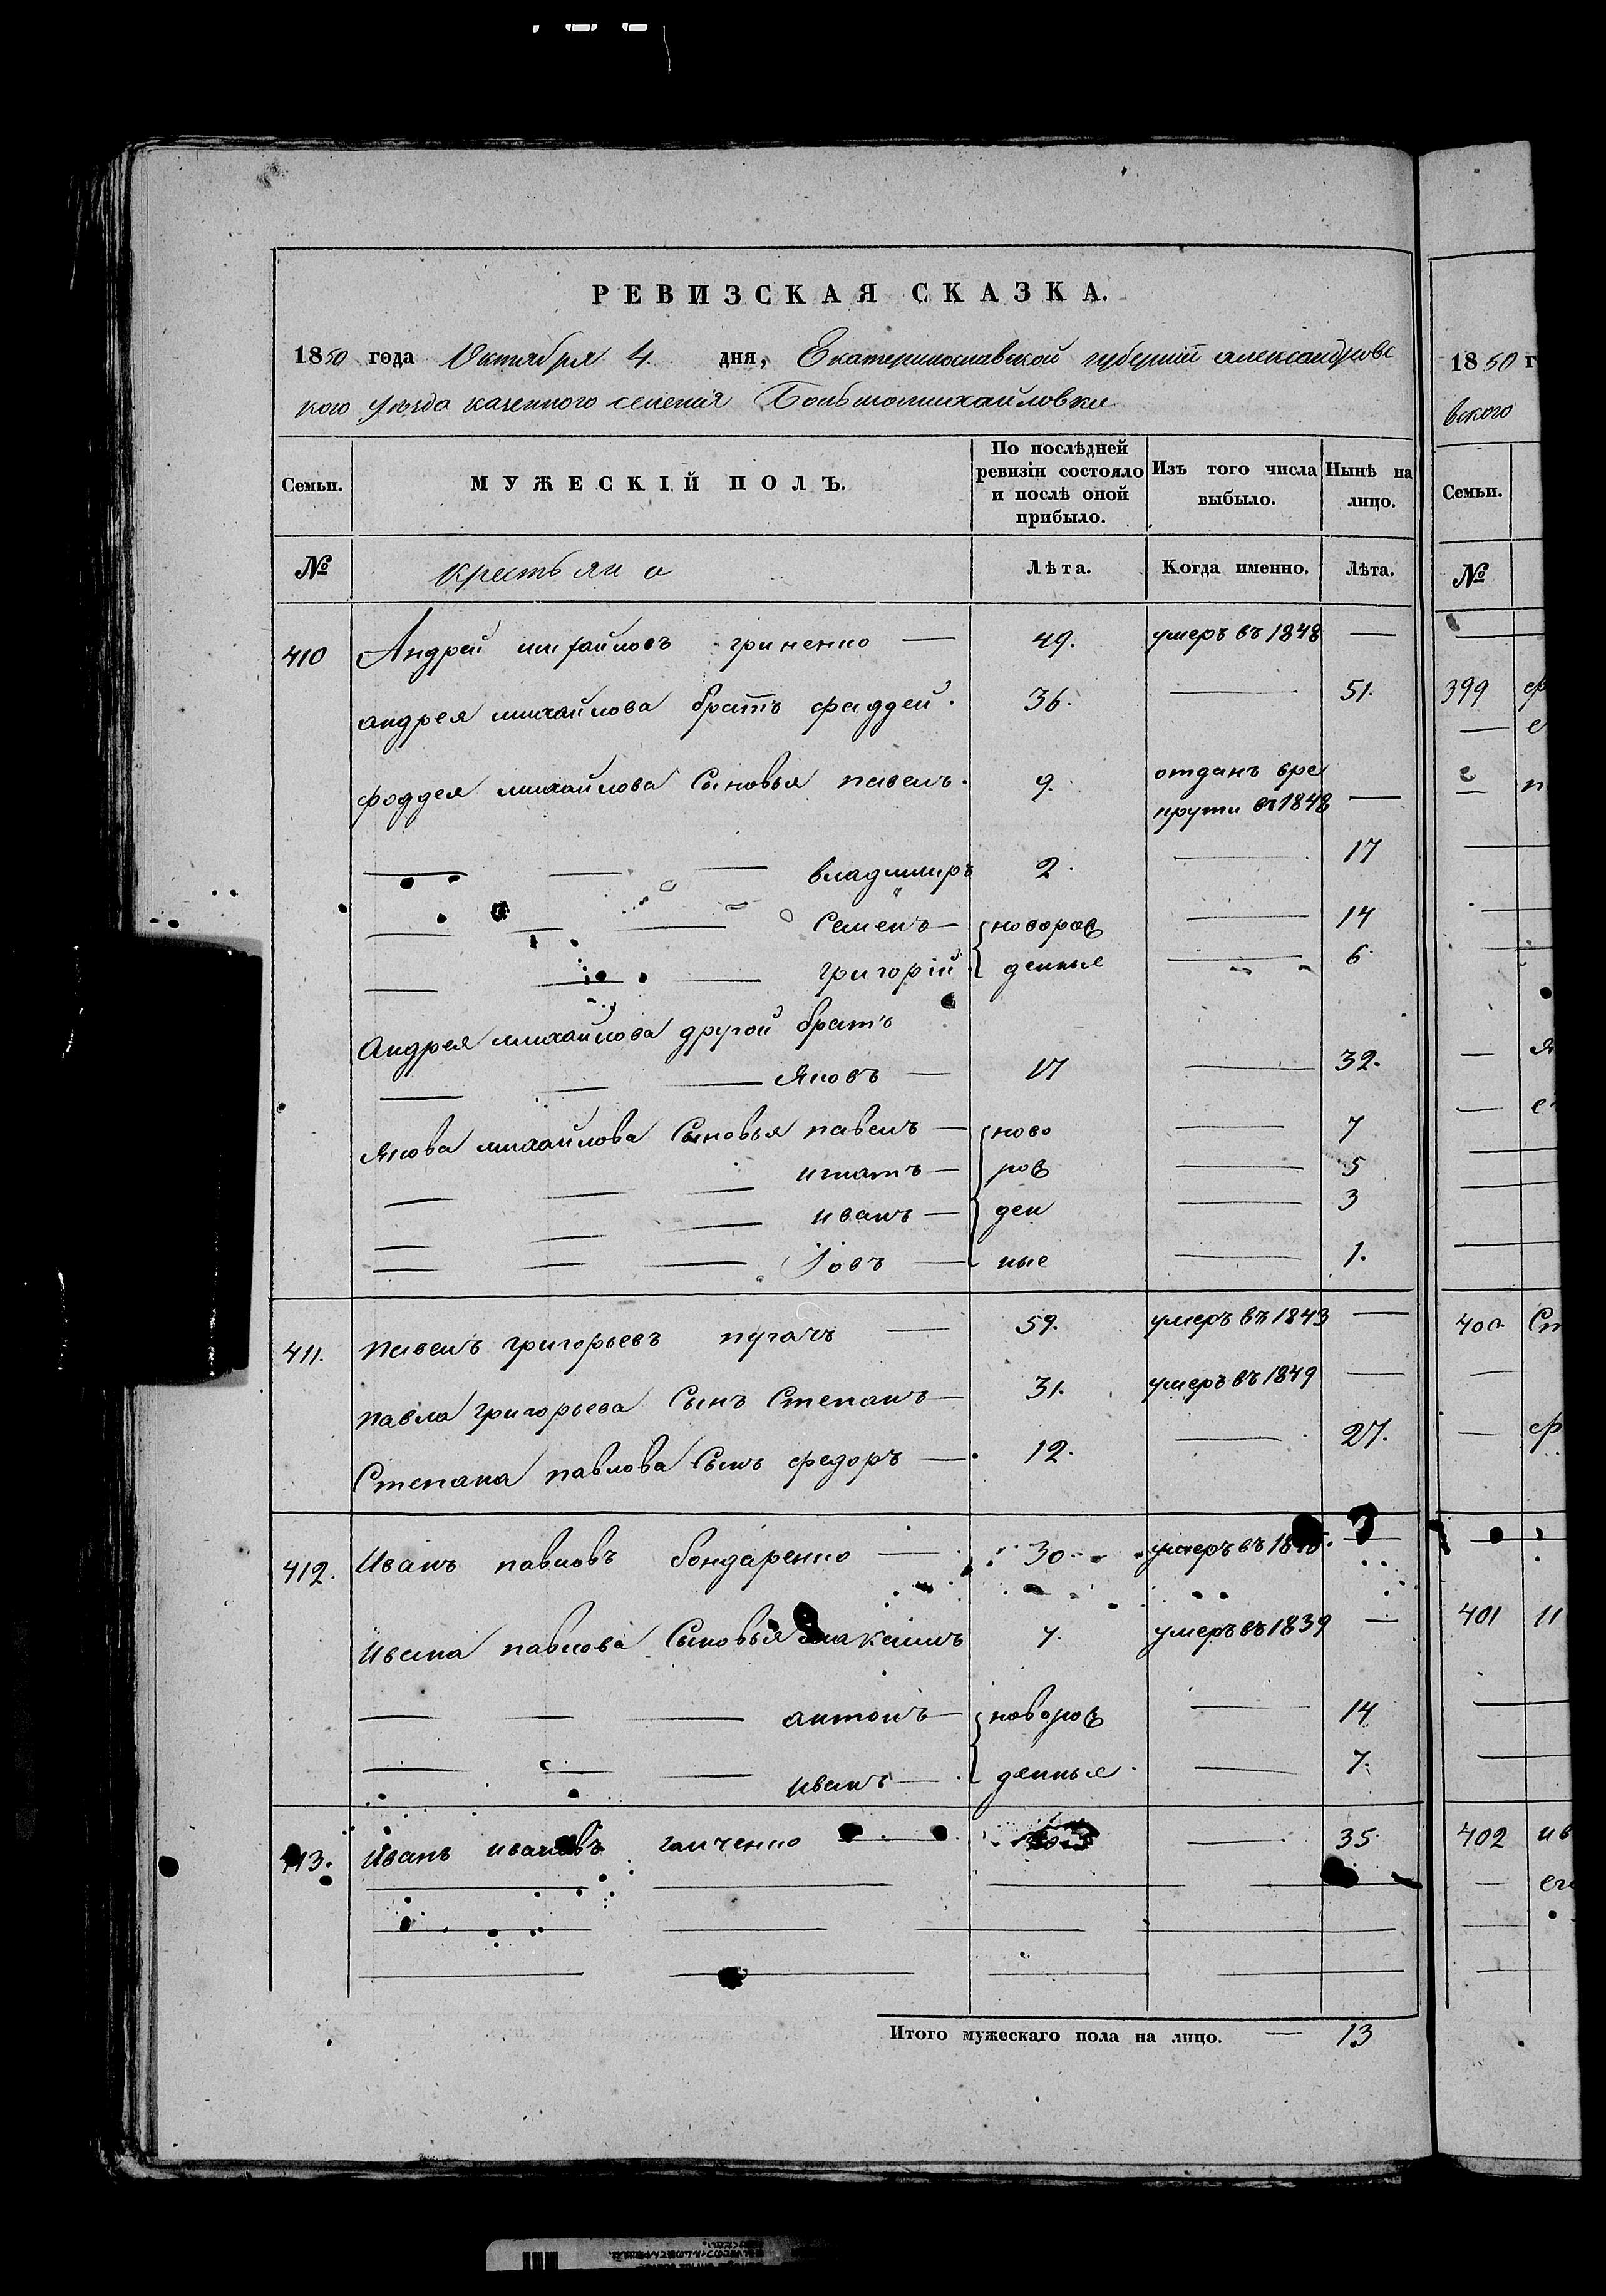 РЕВИЗСКАЯ СКАЗКА.
1850 года Октября 4 дня, Екатеринославской губернии александровс
кого уезда казенного селения Большомихайловки
Семьи. МУЖЕСКІЙ ПОЛЪ. По послѣдней ревизіи состояло и послѣ оной прибыло. Изъ того числа выбыло. Нынѣ на лицо.
№ крестьяна Лѣта. Когда именно. Лѣта.
410 Андрей михайловъ гриненко — 49. умеръ въ 1848 —
андрея михайлова братъ фаддей. 36. — 51.
фаддея михайлова Сыновья павелъ. 9. отданъ вре
круты въ 1848 —
— — — владимиръ 2. — 17
— — — Семенъ — новорож — 14
— — — григорій денные — 6
Андрея михайлова другой братъ
— — — Яковъ — 17 — 32.
Якова михайлова Сыновья павелъ — ново — 7
— — — игнатъ — рож — 5
— — — иванъ — ден — 3
— — — Іовъ — ные — 1.
411. павелъ григорьевъ пугачъ — 59. умеръ въ 1843 —
павла григорьева Сынъ Степанъ — 31. умеръ въ 1849 —
Степана павлова Сынъ федоръ — 12. — 27.
412. Иванъ павловъ бондаренко — 30. умеръ въ —
Ивана павлова Сыновья максимъ 7. умеръ въ 1839 —
— — — антонъ — новорож — 14
— — — иванъ — денные — 7.
413. Иванъ ивановъ галченко — — 35
Итого мужескаго пола на лицо. — 13
1850 г
вского
Семьи.
№
399
400. Ст
401
402 ив